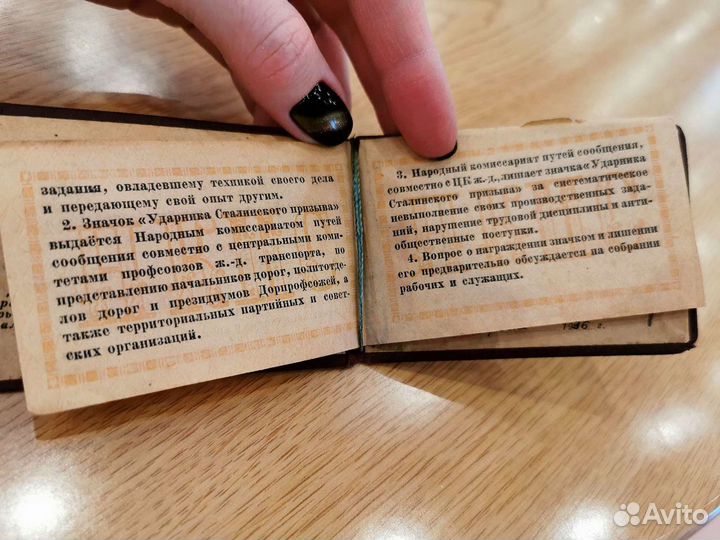 задания, овладевшему техникой своего дела
и передающему свой опыт другим.
2. Значок «Ударника Сталинского призыва»
выдаётся Народным комиссариатом путей
сообщения совместно с центральными коми-
тетами профсоюзов ж.-д. транспорта, по
представлению начальников дорог, политотде-
лов дорог и президиумов Дорпрофсожей, а
также территориальных партийных и совет-
ских организаций.
3. Народный комиссариат путей сообщения,
совместно с ЦК ж.-д., лишает значка «Ударника
Сталинского призыва» за систематическое
невыполнение своих производственных зада-
ний, нарушение трудовой дисциплины и анти-
общественные поступки.
4. Вопрос о награждении значком и лишении
его предварительно обсуждается на собрании
рабочих и служащих.
1936 г.
Avito